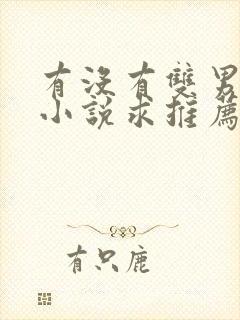 有没有雙男
小說求推薦
有只鹿